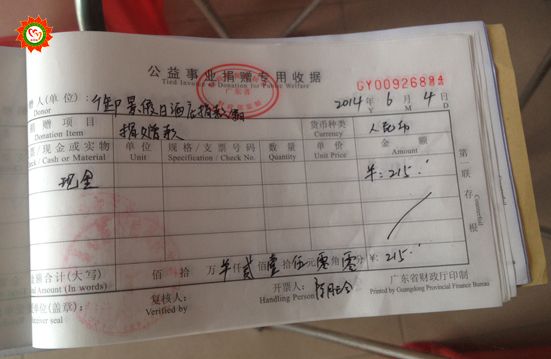 公益事业捐赠专用收据
Tied Invoice of Donation for Public Welfare
广东省
GY00926884
赠人(单位): 御景假日酒店捐款箱
Donor
2014年 6月 4日
Y M D
捐赠项目 捐赠款 货币种类 人民币
Donation Item Currency
现金或实物 单位 规格/支票号码 数量 单价 金额
Cash or Material Unit Specification / Check No. Quantity Unit Price Amount
现金 ¥:215.
第一联 存根
Counterfoil
额合计(大写) 佰 拾 万 仟 贰佰壹拾伍元零角零分 ¥: 215.
Amount (In words)
单位(盖章): 复核人: 开票人:
seal Verified by Handling Person
广东省财政厅印制
Printed by Guangdong Provincial Finance Bureau